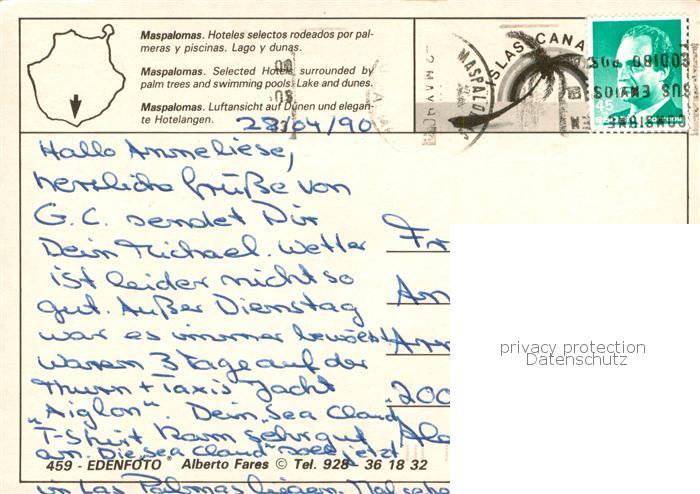 Maspalomas. Hoteles selectos rodeados por pal-
meras y piscinas. Lago y dunas.
Maspalomas. Selected Hotels, surrounded by
palm trees and swimming pools. Lake and dunes.
Maspalomas. Luftansicht auf Dünen und elegan-
te Hotelangen.
28/04/90
MASPALO
ISLAS CANA
45
CODIGO POS
SUS ENVIOS
CONSIGNE
Hallo Anneliese,
herzliche Grüße von
G.C. sendet Dir
Dein Michael. Wetter
ist leider nicht so
gut. Außer Dienstag
war es immer bewölkt
waren 3 Tage auf der
Thurn + Taxis Jacht
"Aiglon". Dein "Sea Cloud"
T-Shirt kam sehr gut
an. Die "Sea Cloud" soll jetzt
in Las Palmas liegen. Mal sehe
Fr
An
200
privacy protection
Datenschutz
459 - EDENFOTO Alberto Fares © Tel. 928 - 36 18 32